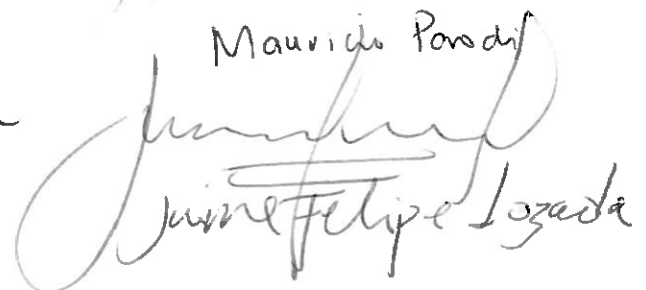 Mauricio Parodi
Jaime Felipe Lozada